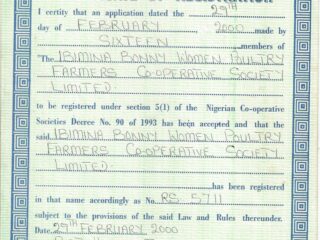 I certify that an application dated the 29TH
day of FEBRUARY 2000 made by
SIXTEEN members of
"The IBIMINA BONNY WOMEN POULTRY
FARMERS CO-OPERATIVE SOCIETY
LIMITED.
to be registered under section 5(1) of the Nigerian Co-operative
Societies Decree No. 90 of 1993 has been accepted and that the
said IBIMINA BONNY WOMEN POULTRY
FARMERS CO-OPERATIVE SOCIETY
LIMITED.
has been registered
in that name accordingly as No RS 5711
subject to the provisions of the said Law and Rules thereunder.
Date 29TH FEBRUARY 2000